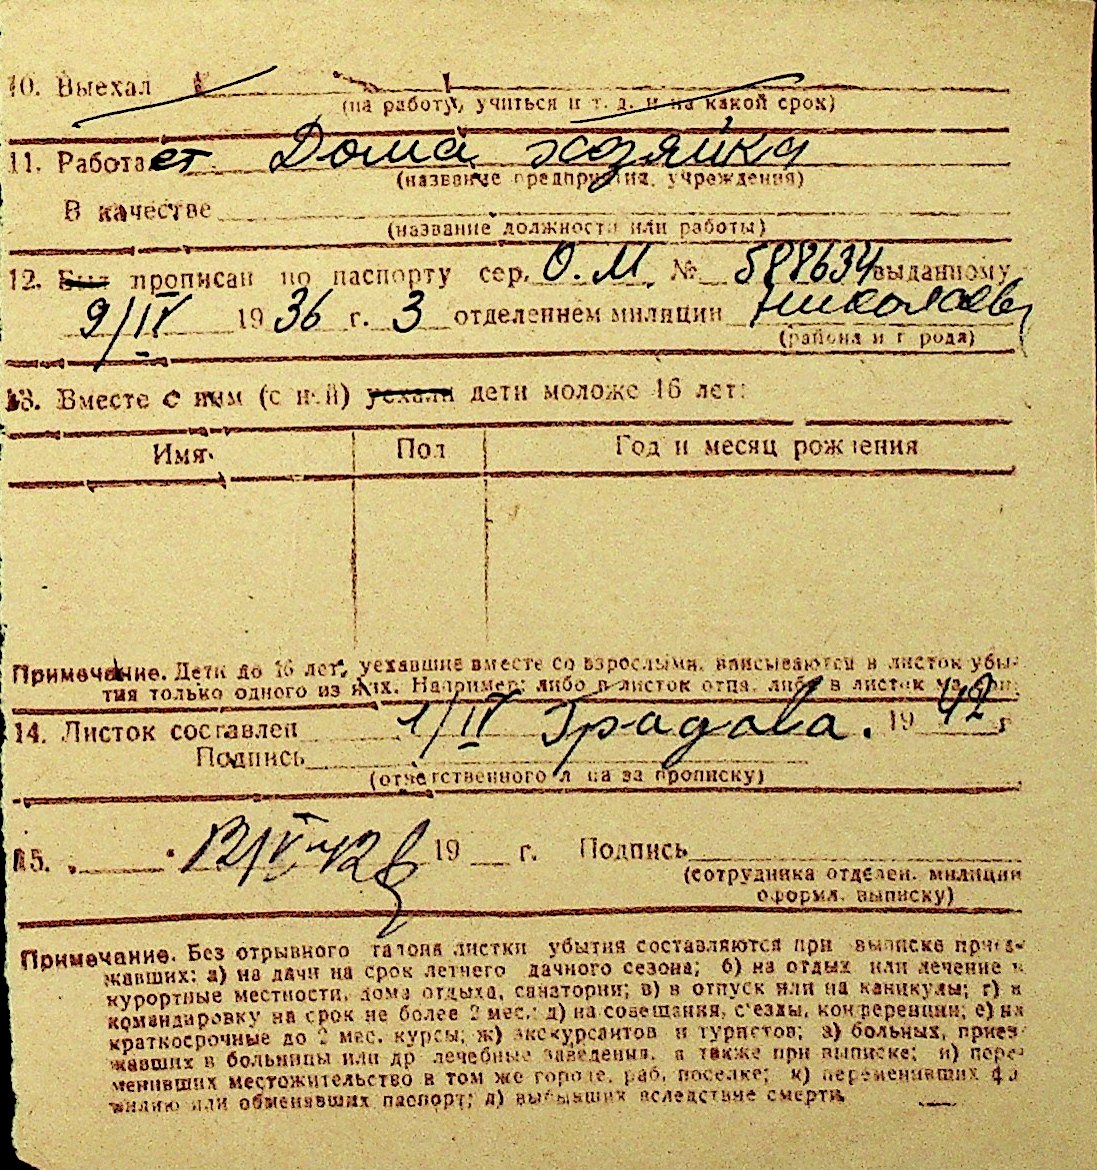 10. Выехал
(на работу, учиться и т. д. и на какой срок)
11. Работает Дома хозяйка
(название предприятия, учреждения)
В качестве
(название должности или работы)
12. Был прописан по паспорту сер. О.М. № 588634 выданному
9/IV 1936 г. 3 отделением милиции Николаев
(района и города)
13. Вместе с ним (с ней) уехали дети моложе 16 лет:
Имя Пол Год и месяц рождения
Примечание. Дети до 16 лет, уехавшие вместе со взрослыми, вписываются в листок убы-
тия только одного из них. Например: либо в листок отца, либо в листок
14. Листок составлен 1/IV Градова. 1942 г
Подпись
(ответственного лица за прописку)
15. 12/V-42 19 г. Подпись
(сотрудника отделен. милиции
оформл. выписку)
Примечание. Без отрывного талона листки убытия составляются при выписке приез-
жавших: а) на дачи на срок летнего дачного сезона; б) на отдых или лечение в
курортные местности, дома отдыха, санатории; в) в отпуск или на каникулы; г) в
командировку на срок не более 2 мес.; д) на совещания, с'езды, конференции; е) на
краткосрочные до 2 мес. курсы; ж) экскурсантов и туристов; з) больных, приез-
жавших в больницы или др. лечебные заведения, а также при выписке; и) пере-
менивших местожительство в том же городе, раб. поселке; к) переменивших фа
милию или обменявших паспорт; л) выбывших вследствие смерти.